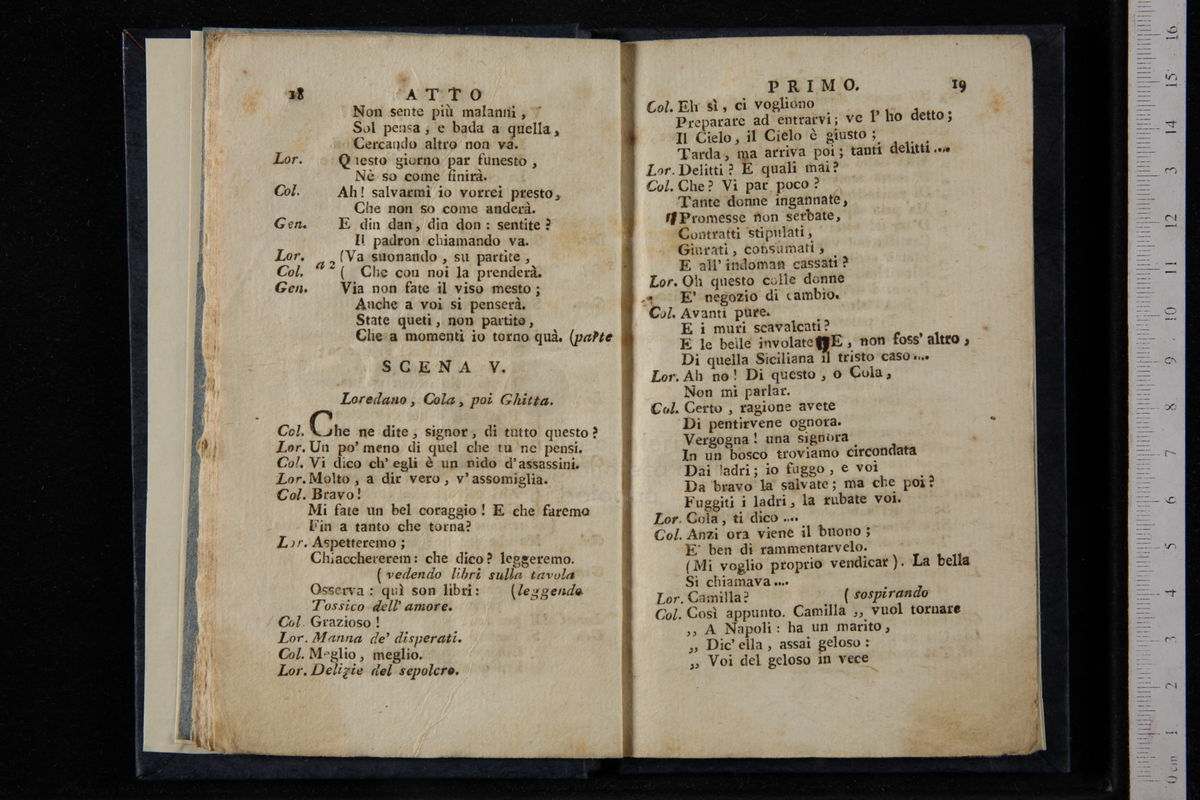 18 ATTO
Non sente più malanni,
Sol pensa, e bada a quella,
Cercando altro non va.
Lor. Questo giorno par funesto,
Nè so come finirà.
Col. Ah! salvarmi io vorrei presto,
Che non so come anderà.
Gen. E din dan, din don: sentite?
Il padron chiamando va.
Lor. (Va suonando, su partite,
a 2
Col. ( Che con noi la prenderà.
Gen. Via non fate il viso mesto;
Anche a voi si penserà.
State queti, non partite,
Che a momenti io torno quà. (parte
SCENA V.
Loredano, Cola, poi Ghitta.
Col. Che ne dite, signor, di tutto questo?
Lor. Un po' meno di quel che tu ne pensi.
Col. Vi dico ch' egli è un nido d'assassini.
Lor. Molto, a dir vero, v'assomiglia.
Col. Bravo!
Mi fate un bel coraggio! E che faremo
Fin a tanto che torna?
Lor. Aspetteremo;
Chiacchererem: che dico? leggeremo.
(vedendo libri sulla tavola
Osserva: quì son libri: (leggendo
Tossico dell' amore.
Col. Grazioso!
Lor. Manna de' disperati.
Col. Meglio, meglio.
Lor. Delizie del sepolcro.
PRIMO. 19
Col. Eh sì, ci vogliono
Preparare ad entrarvi; ve l' ho detto;
Il Cielo, il Cielo è giusto;
Tarda, ma arriva poi; tanti delitti....
Lor. Delitti? E quali mai?
Col. Che? Vi par poco?
Tante donne ingannate,
Promesse non serbate,
Contratti stipulati,
Giurati, consumati,
E all' indoman cassati?
Lor. Oh questo colle donne
E' negozio di cambio.
Col. Avanti pure.
E i muri scavalcati?
E le belle involate? E, non foss' altro,
Di quella Siciliana il tristo caso....
Lor. Ah no! Di questo, o Cola,
Non mi parlar.
Col. Certo, ragione avete
Di pentirvene ognora.
Vergogna! una signora
In un bosco troviamo circondata
Dai ladri; io fuggo, e voi
Da bravo la salvate; ma che poi?
Fuggiti i ladri, la rubate voi.
Lor. Cola, ti dico....
Col. Anzi ora viene il buono;
E' ben di rammentarvelo.
(Mi voglio proprio vendicar). La bella
Si chiamava....
Lor. Camilla? (sospirando
Col. Così appunto. Camilla ,, vuol tornare
,, A Napoli: ha un marito,
,, Dic' ella, assai geloso:
,, Voi del geloso in vece
0 cm 1 2 3 4 5 6 7 8 9 10 11 12 13 14 15 16